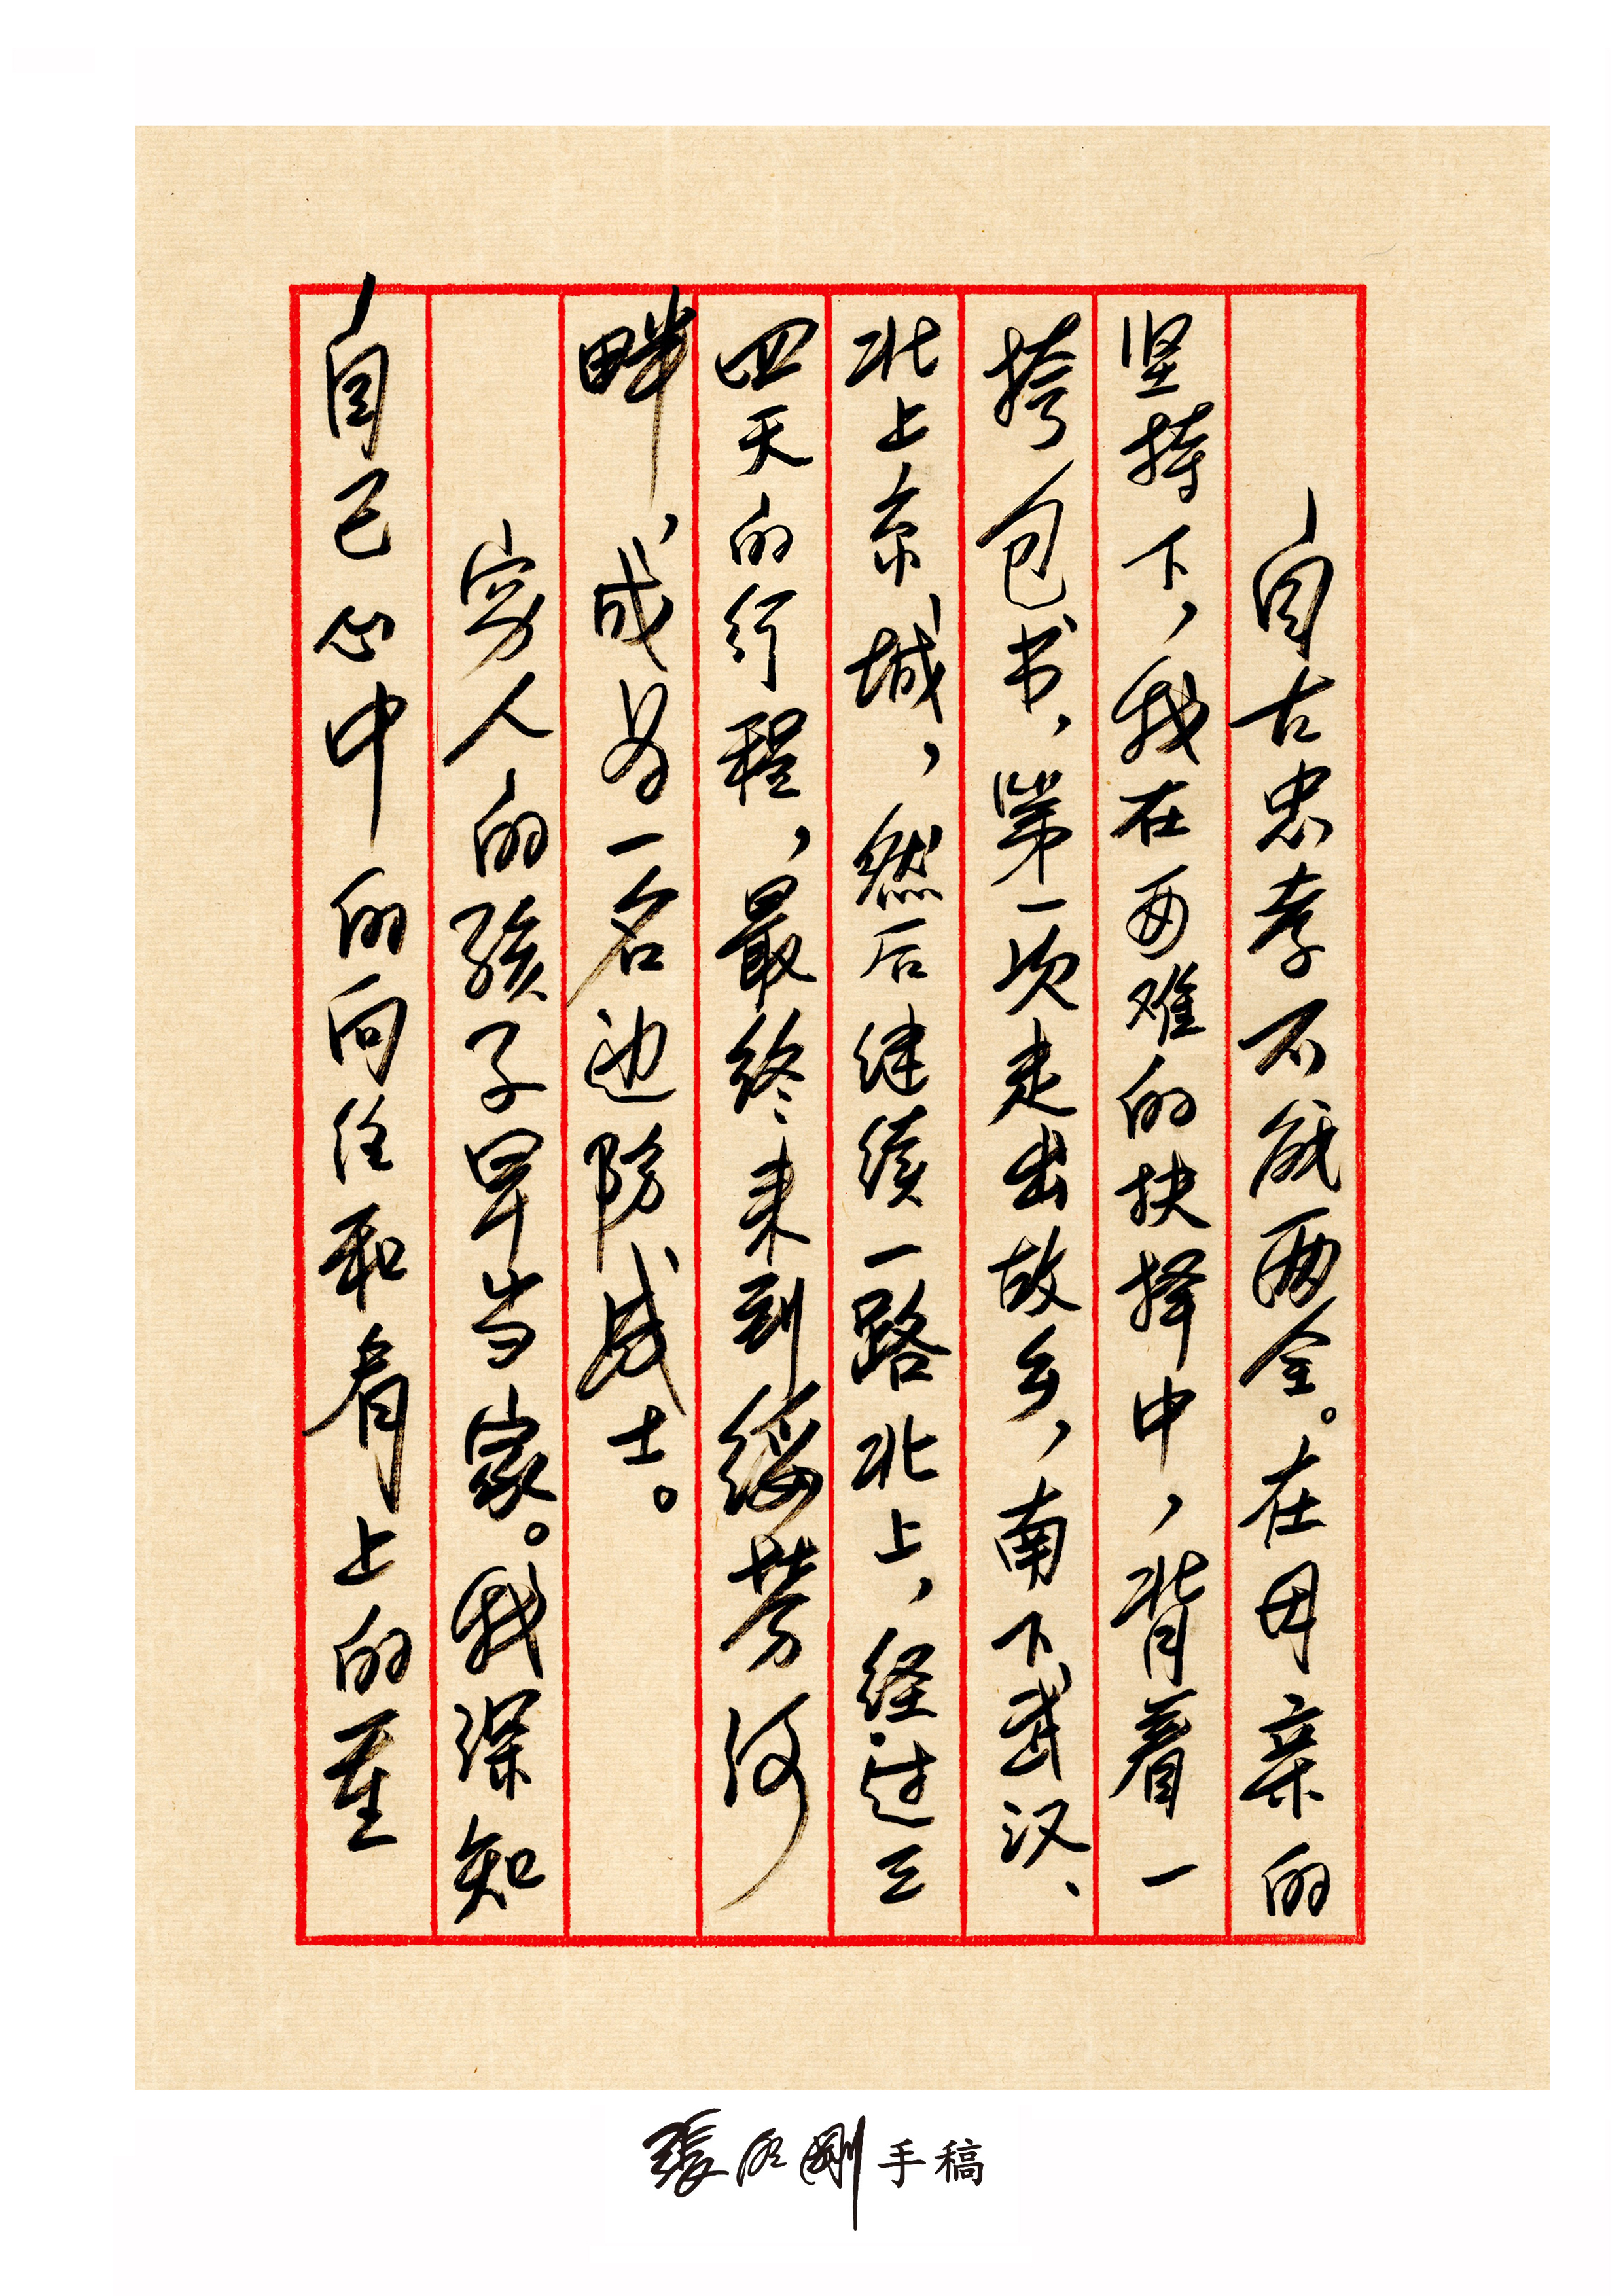 自古忠孝不能两全。在母亲的
坚持下，我在两难的抉择中，背着一
挎包书，第一次走出故乡，南下武汉、
北上京城，然后继续一路北上，经过三
四天的行程，最终来到绥芬河
畔，成为一名边防战士。
穷人的孩子早当家。我深知
自己心中的向往和肩上的重
手稿